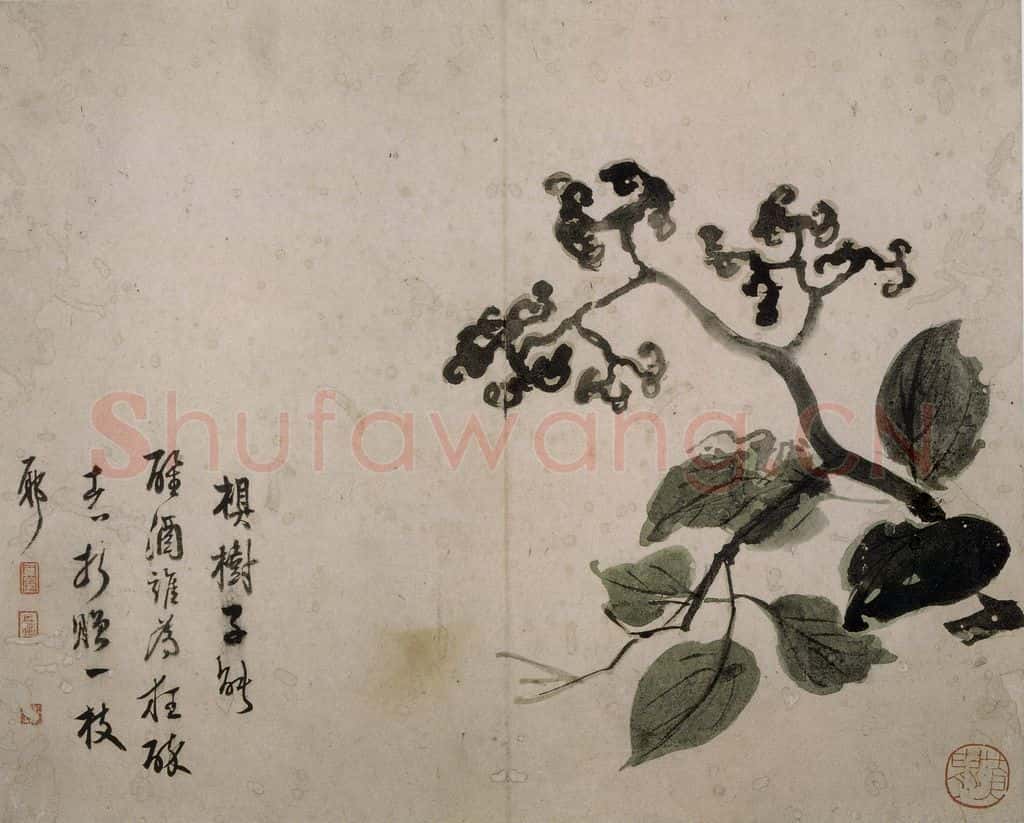 椇樹子能
醒酒誰為狂醉
者折贈一枝
耶
Shufawang.CN